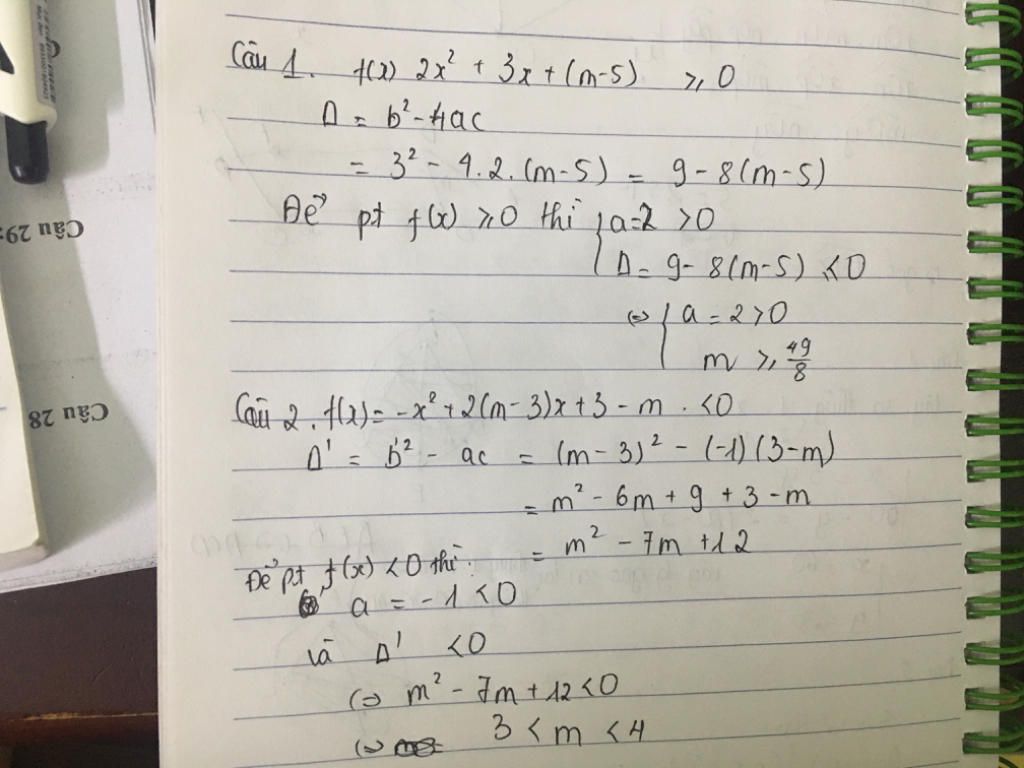 Câu 1. f(x) 2x² + 3x + (m-5) ≥ 0
Δ = b² - 4ac
= 3² - 4.2.(m-5) = 9 - 8(m-5)
Để pt f(x) ≥ 0 thì { a=2 > 0
Δ = 9 - 8(m-5) ≤ 0
⇔ { a = 2 > 0
m ≥ 49/8
Câu 2. f(x) = -x² + 2(m-3)x + 3 - m . < 0
Δ' = b'² - ac = (m-3)² - (-1)(3-m)
= m² - 6m + 9 + 3 - m
= m² - 7m + 12
Để pt f(x) < 0 thì:
a = -1 < 0
và Δ' < 0
⇔ m² - 7m + 12 < 0
⇔ 3 < m < 4
Câu 29:
Câu 28